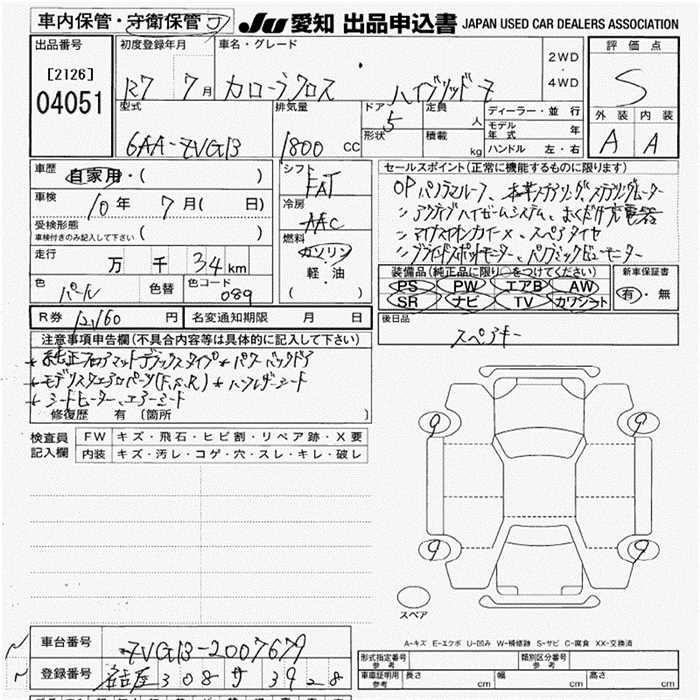 車内保管・守衛保管 JU 愛知 出品申込書 JAPAN USED CAR DEALERS ASSOCIATION
出品番号 初度登録年月 車名・グレード 2WD 評価点
[2126] R7 7月 カローラクロス ハイブリッド Z ・ 4WD S
04051 型式 排気量 ドア 5 定員 人 ディーラー・並行
形状 積載 kg モデル年式 年 外装 内装
6AA-ZVG13 1800 CC ハンドル 左・右 A A
車歴 自家用・( ) シフト FAT セールスポイント(正常に機能するものに限ります)
車検 10年 7月 ( 日) 冷房 AAC OPパノラマルーフ、本革ステアリング、ステアリングヒーター
受検形態 車検付きのみ記入して下さい ( ) 〃アクティブハイビームシステム、おくだけ充電器
燃料 ガソリン ・ 軽・油 ( ) 〃スペアタイヤ
走行 万 千 34km 〃ブラインドスポットモニター、パノラミックビューモニター
色 パール 色替 色コード 089 装備品(純正品に限り○をつけてください) 新車保証書
PS PW エアB AW 有・無
SR ナビ TV カワシート
R券 12160円 名変通知期限 月 日 後日品
スペアキー
注意事項申告欄(不具合内容等は具体的に記入して下さい)
*純正フロアマットデラックスタイプ *パワーバックドア
*モデリスタエアロパーツ(F,S,R) *ハーフレザーシート
*シートヒーター、エアーシート
修復歴 有 〔箇所 〕
検査員記入欄 FW キズ・飛石・ヒビ割・リペア跡・X要
内装 キズ・汚レ・コゲ・穴・スレ・キレ・破レ
9 9
9 9
スペア
A-キズ E-エクボ U-凹み W-補修跡 S-サビ C-腐食 XX-交換済
車台番号 ZVG13-2007679
登録番号 名古屋 308 サ 3928
形式指定番号 参考 類別区分番号 参考
車庫証明用 参考 長さ cm 幅 cm 高さ cm